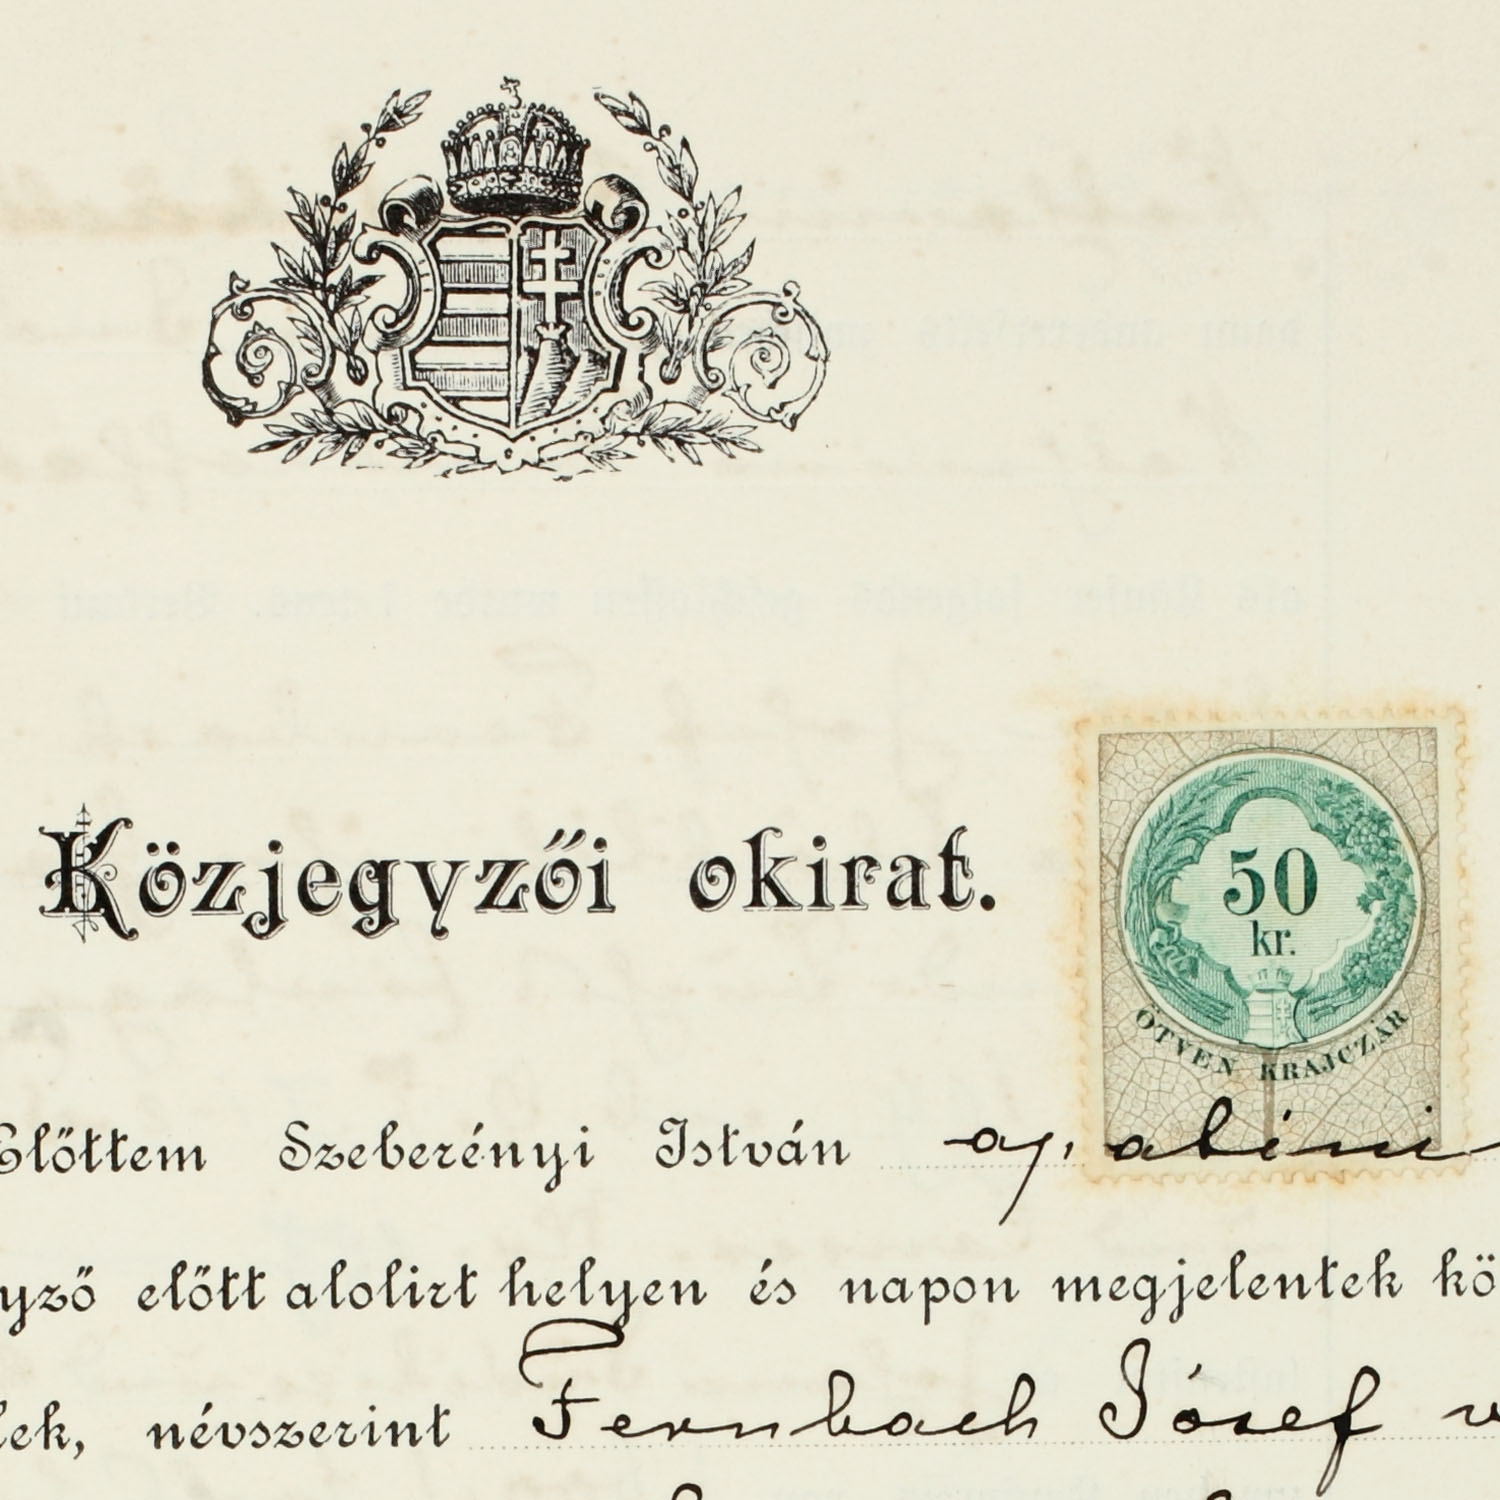 Közjegyzői okirat.
50
kr.
ÖTVEN KRAJCZÁR
Előttem Szeberényi István ap. abéni
yző előtt alolirt helyen és napon megjelentek kö
lek, névszerint Fernbach József v